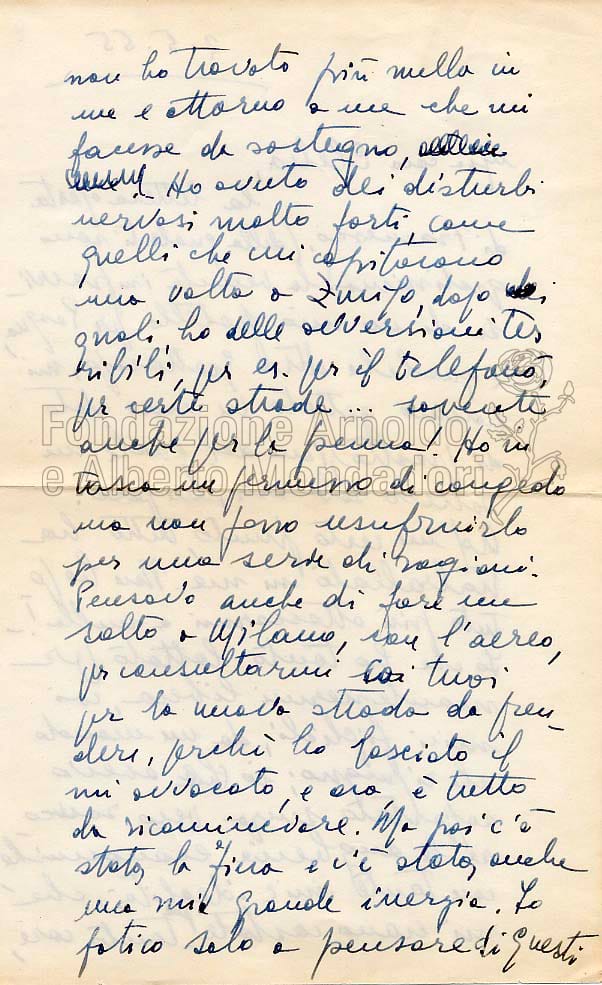 non ho trovato più nulla in
me e attorno a me che mi
facesse da sostegno,
Ho avuto dei disturbi
nervosi molto forti, come
quelli che mi capitarono
una volta a Zurigo, dopo
quali, ho delle avversioni ter
ribili, per es. per il telefono,
per certe strade... sovente
anche per la penna! Ho in
Fondazione Arnoldo
e Alberto Mondadori
tasca un permesso di congedo
ma non posso usufruirlo
per una serie di ragioni.
Pensavo anche di fare un
salto a Milano, con l'aereo,
per consultarmi coi tuoi
per la nuova strada da pren-
dere, perchè ho lasciato il
mi avvocato, e ora è tutto
da ricominciare. Ma poi c'è
stata la Fiera e c'è stata anche
una mia grande inerzia. Io
fatico solo a pensare di questi